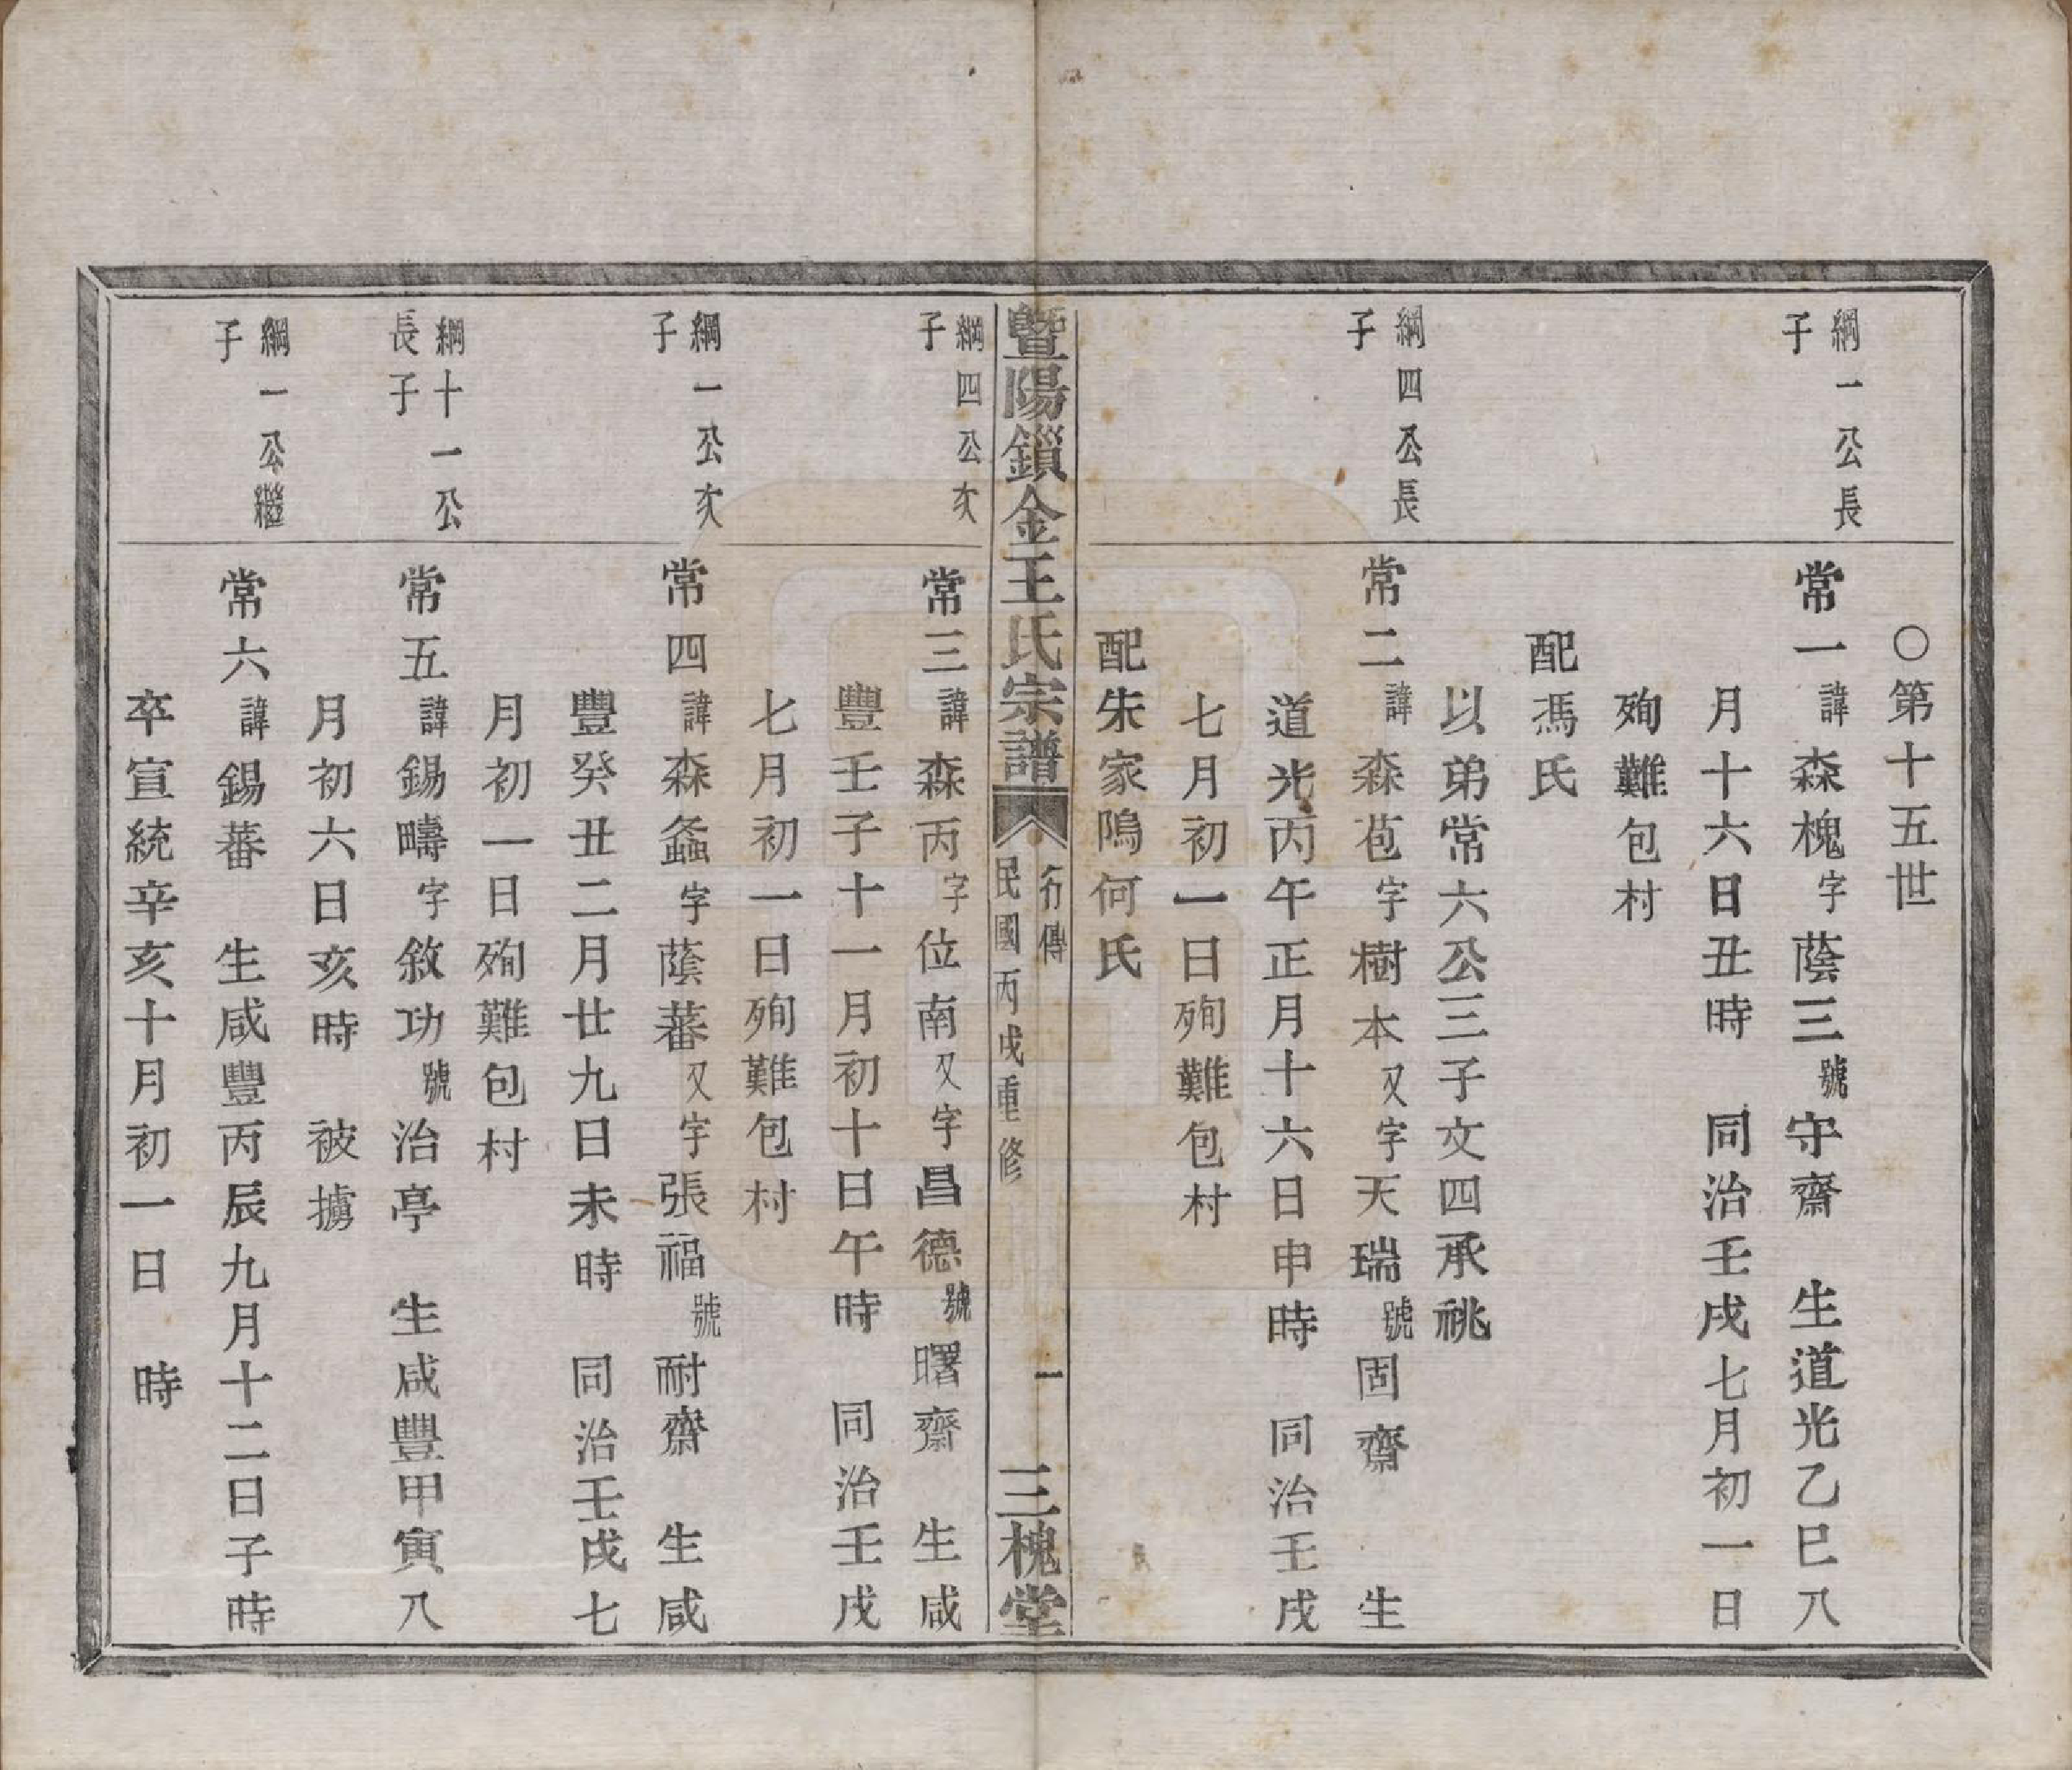 ○第十五世
綱一公長
子
常一諱森槐字蔭三號守齋　生道光乙巳八
月十六日丑時　同治壬戌七月初一日
殉難包村
配馮氏
以弟常六公三子文四承祧
綱四公長
子
常二諱森苞字樹本又字天瑞號固齋　生
道光丙午正月十六日申時　同治壬戌
七月初一日殉難包村
配朱家隖何氏
暨陽鎖金王氏宗譜
行傳
民國丙戌重修
一
三槐堂
綱四公次
子
常三諱森丙字位南又字昌德號曙齋　生咸
豐壬子十一月初十日午時　同治壬戌
七月初一日殉難包村
綱一公次
子
常四諱森蟊字蔭蕃又字張福號耐齋　生咸
豐癸丑二月廿九日未時　同治壬戌七
月初一日殉難包村
綱十一公
長子
常五諱錫疇字敘功號治亭　生咸豐甲寅八
月初六日亥時　被擄
綱一公繼
子
常六諱錫蕃　生咸豐丙辰九月十二日子時
卒宣統辛亥十月初一日　時